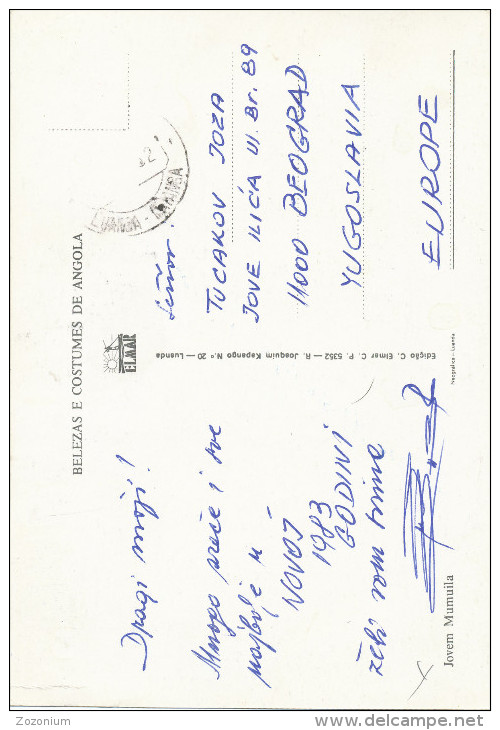 BELEZAS E COSTUMES DE ANGOLA
Dragi moji!
Mnogo sreće i sve
najbolje u
NOVOJ
1983
GODINI
želi vam
Jovem Mumuila
ELMAR
Edição C. Elmar C. P. 5352 — R. Joaquim Kapango N.º 20 — Luanda
Neográfica — Luanda
LUANDA - LUANDA
Señor.
TUCAKOV JOZA
JOVE ILIĆA Ul. Br. 89
11000 BEOGRAD
YUGOSLAVIA
EUROPE
Zozonium
delcampe.net